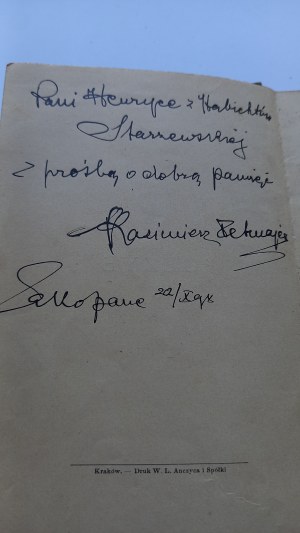 Pani Henryce z Habichtów
Starzewskiéj
z prośbą o dobrą pamięć
Kazimierz Tetmajer
Zakopane 22/X
Kraków. — Druk W. L. Anczyca i Spółki